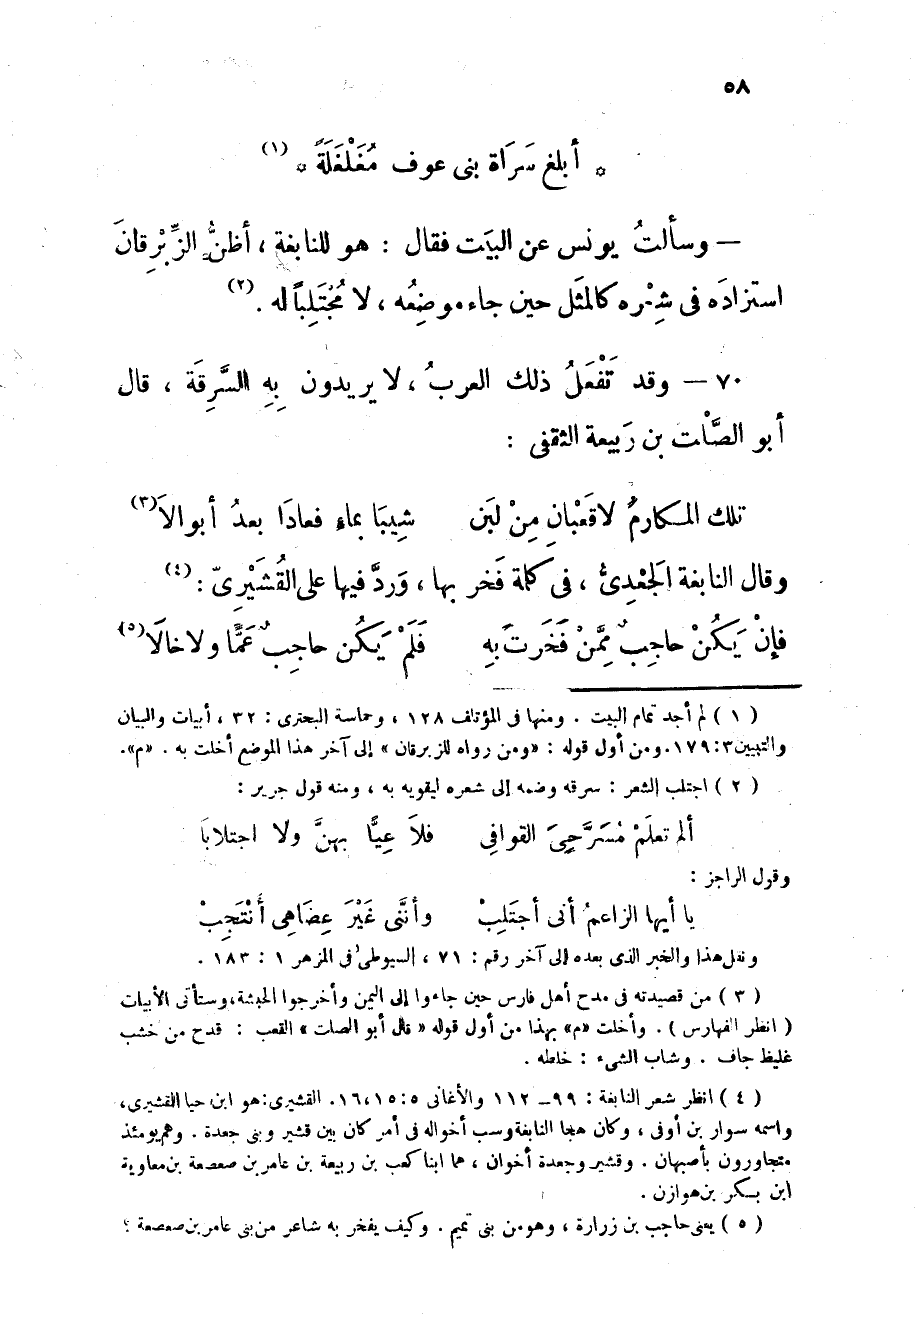 ٥٨
* أبلغ سَرَاة بنى عوف مُغَلْغَلَةً * (١)
— وسألتُ يونس عن البيَت فقال : هو للنابغة ، أظنُّ الزِّبْرِقانَ
استزادَه فى شِعْره كالمثَل حين جاء موضِعُه ، لا مُجْتَلِباً له . (٢)
٧٠ — وقد تَفْعَلُ ذلك العربُ ، لا يريدون بِهِ السَّرِقَة ، قال
أبو الصَّلْت بن رَبيعة الثقفى :
تلك المكارمُ لاقَعْبانِ مِنْ لَبَن شِيبَا بماءِ فعادَا بعدُ أبوالاَ (٣)
وقال النابغة الجَعْدِىُّ ، فى كلمة فَخر بها ، وَردَّ فيها على القُشَيْرِىّ : (٤)
فإنْ يَكُنْ حاجِبٌ مِمَّنْ فَخَرتَ بِهِ فَلَمْ يَكُن حاجِبٌ عَمًّا ولا خالَا (٥)
( ١ ) لم أجد تمام البيت . ومنها فى المؤتلف ١٢٨ ، وحماسة البحترى : ٣٢ ، أبيات والبيان
والتبيين ٣ : ١٧٩. ومن أول قوله : « ومن رواه للزبرقان » إلى آخر هذا الموضع أخلت به . « م ».
( ٢ ) اجتلب الشعر : سرقه وضمه إلى شعره ليقويه به ، ومنه قول جرير :
ألم تعلَمْ مُسَرَّحِىَ القوافِى فلاَ عِيًّا بهنَّ ولا اجتلابَا
وقول الراجز :
يا أيها الزاعمُ أنى أجتَلِبْ وأنَّنى غَيْرَ عِضَاهِى أَنْتَجِبْ
ونقل هذا والخبر الذى بعده إلى آخر رقم : ٧١ ، السيوطى فى المزهر ١ : ١٨٣ .
( ٣ ) من قصيدته فى مدح أهل فارس حين جاءوا إلى اليمن وأخرجوا الحبشة، وستأتى الأبيات
( انظر الفهارس ) . وأخلت « م » بهذا من أول قوله « قال أبو الصلت » القعب : قدح من خشب
غليظ جاف . وشاب الشىء : خلطه .
( ٤ ) انظر شعر النابغة : ٩٩ـ ١١٢ والأغانى ٥ : ١٥،١٦. القشيرى: هو ابن حيا القشيرى،
واسمه سوار بن أوفى ، وكان هجا النابغة وسب أخواله فى أمر كان بين قشير وبنى جعدة . وهم يومئذ
متجاورون بأصبهان . وقشير وجعدة أخوان ، هما ابنا كعب بن ربيعة بن عامر بن صعصعة بن معاوية
ابن بكر بن هوازن .
( ٥ ) يعنى حاجب بن زرارة ، وهو من بنى تميم . وكيف يفخر به شاعر من بنى عامر بن صعصعة ؟